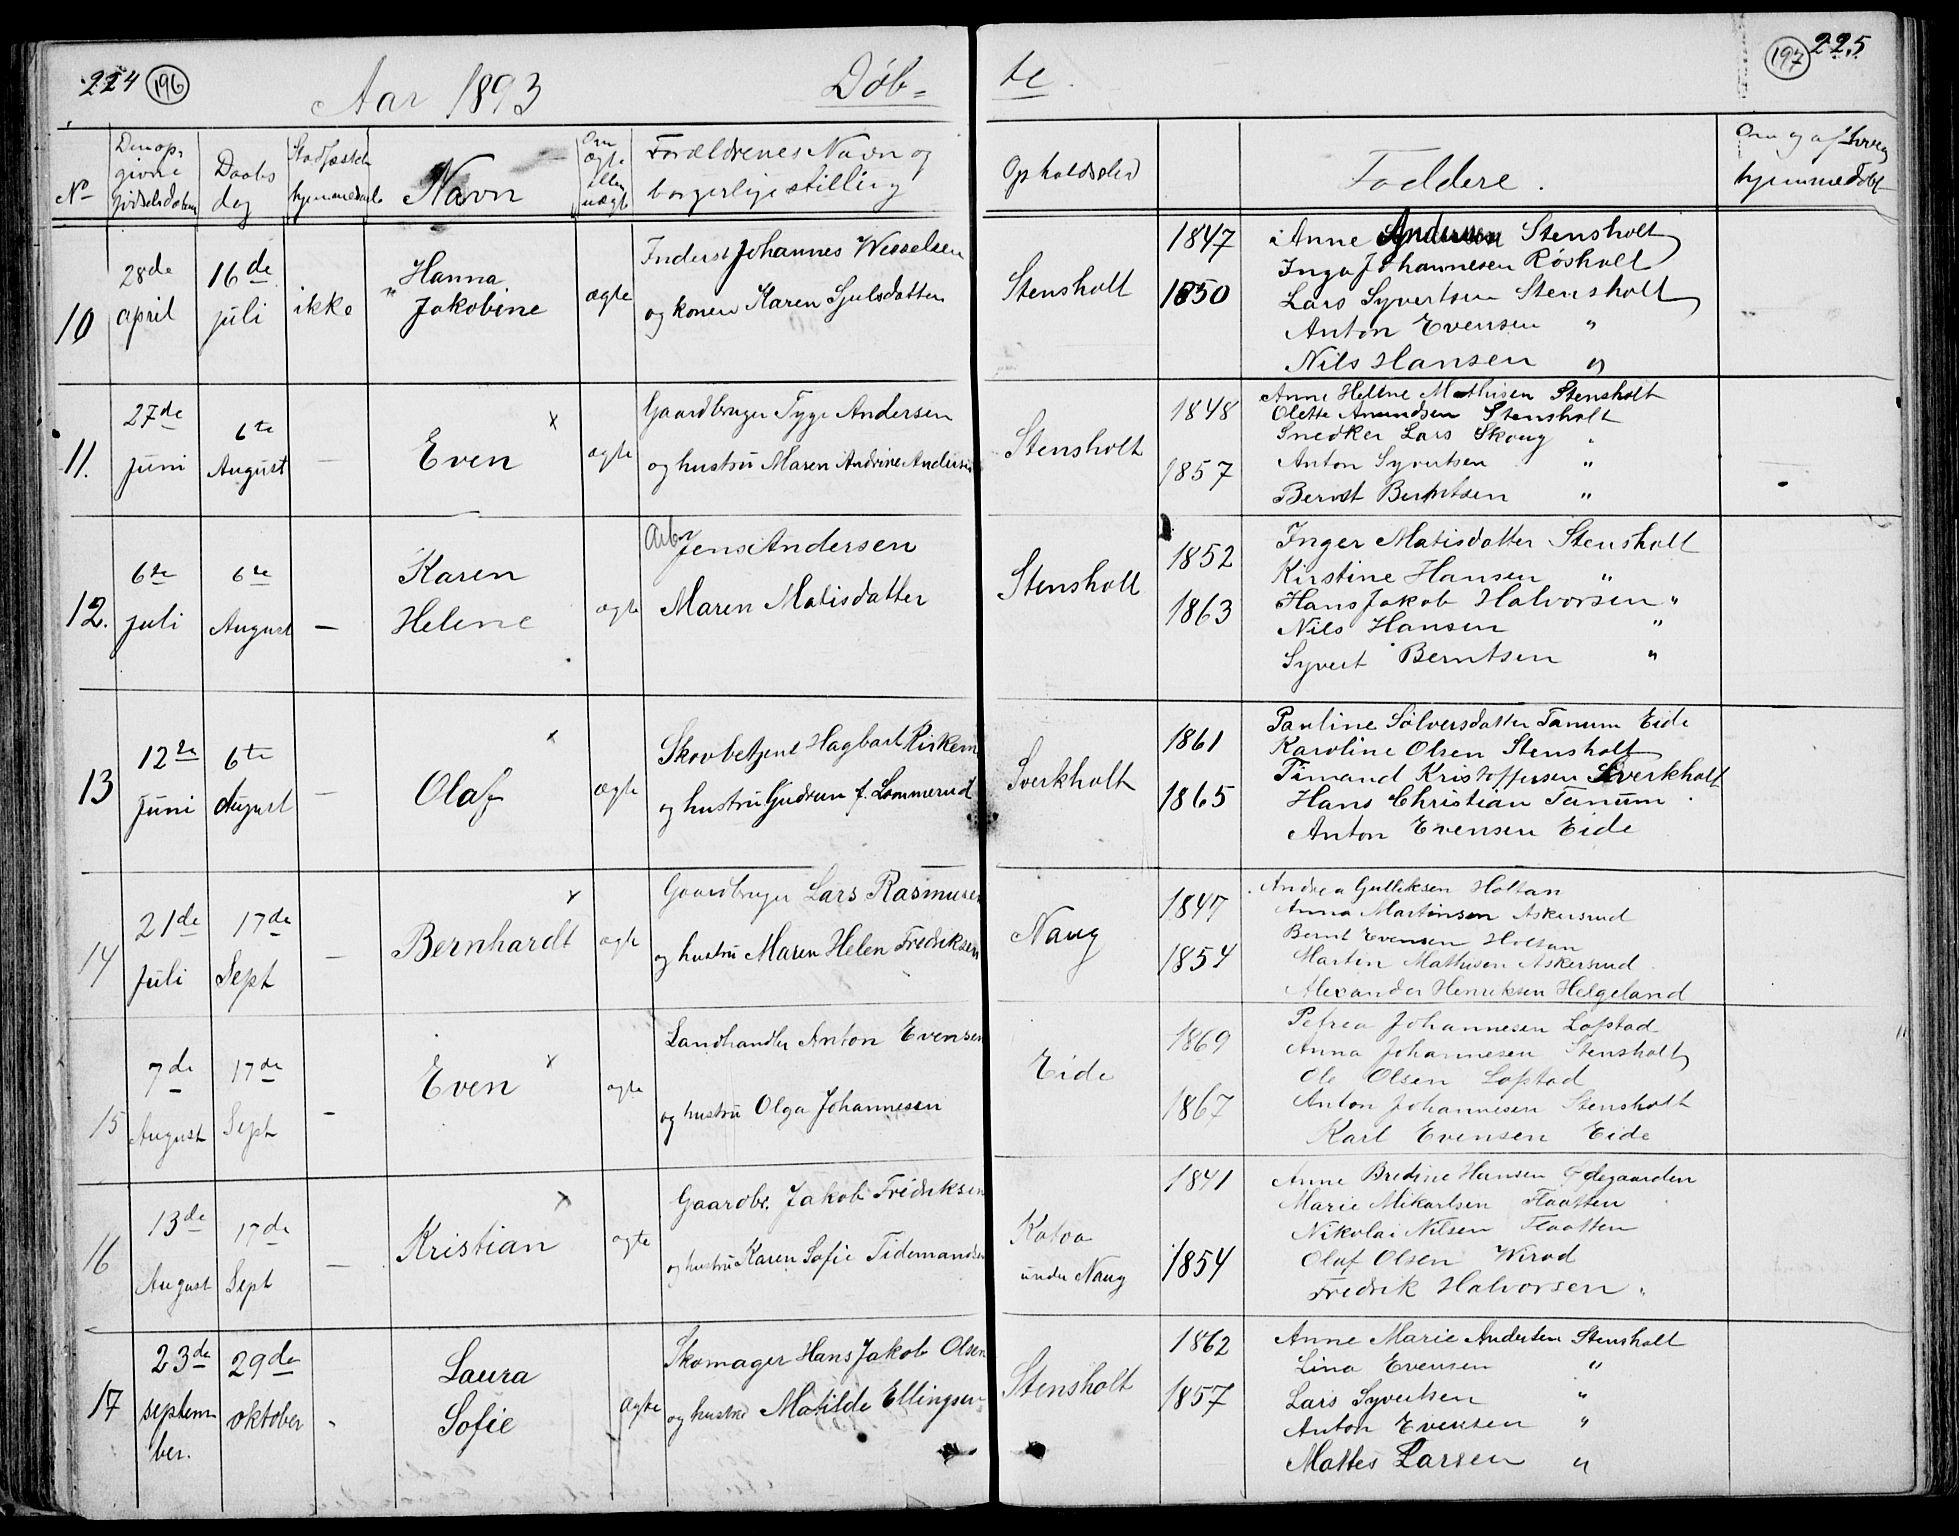 224 196
Aar 1893
Døb-
te.
197 225
No
Den op-
givne
fødselsdatum
Daabs
dag
hjemmedaab
Navn
Om
ægte
eller
uægte
Forældrenes Navn og
borgerlige stilling
Opholdssted
Faddere.
hjemmedøbt
10
28de
april
16de
juli
ikke
Hanna
Jakobine
ægte
Inderst Johannes Wesselsen
og konen Karen Sjulsdatter
Stensholt
1847
1850
Anne Andersen Stensholt
Inga Johannesen Rösholt
Lars Syvertsen Stensholt
Anton Evensen "
Nils Hansen "
11.
27de
juni
6te
August
—
Even x
ægte
Gaardbruger Tyge Andersen
og hustru Maren Andrine Andersen
Stensholt
1848
1857
Anne Helene Mathisen Stensholt
Olette Amundsen Stensholt
Snedker Lars Skoug "
Anton Syvertsen "
Bernt Berntsen "
12.
6te
juli
6te
August
—
Karen
Helene
ægte
Arb. Jens Andersen
Maren Matisdatter
Stensholt
1852
1863
Inger Matisdatter Stensholt
Kirstine Hansen "
Hans Jakob Halvorsen "
Nils Hansen "
Syvert Berntsen "
13
12te
juni
6te
August
—
Olaf x
ægte
Skovbetjent Hagbart Kirkem
og hustru Gudrun f. Lammerud
Sverkholt
1861
1865
Pauline Sölversdatter Tanum Eide
Karoline Olsen Stensholt
Timand Kristoffersen Sverkholt
Hans Christian Tanum
Anton Evensen Eide
14
21de
Juli
17de
Sept
—
Bernhardt x
ægte
Gaardbruger Lars Rasmusen
og hustru Maren Helen Fredriksen
Naug
1847
1854
Andrea Gulliksen Holtan
Anna Martinsen Askersrud
Bernt Evensen Holtan
Martin Mathisen Askersrud
Alexander Henriksen Helgeland
15
7de
August
17de
Sept
—
Even x
ægte
Landhandler Anton Evensen
og hustru Olga Johannesen
Eide
1869
1867
Petrea Johannesen Lofstad
Anna Johannesen Stensholt
Ole Olsen Lofstad
Anton Johannesen Stensholt
Karl Evensen Eide
16
13de
August
17de
Sept
—
Kristian x
ægte
Gaardbr. Jakob Fredriksen
og hustru Karen Sofie Tidemandsen
under Naug
1841
1854
Anne Bredine Hansen Ødegaarden
Marie Mikarlsen Flaatten
Nikolai Nilsen Flaatten
Olaf Olsen Wirod
Fredrik Halvorsen "
17
23de
septem-
ber.
29de
oktober
-
Laura
Sofie
ægte
Skomager Hans Jakob Olsen
og hustru Matilde Ellingsen
Stensholt
1862
1857
Anne Marie Andersen Stensholt
Lina Evensen "
Lars Syvertsen "
Anton Evensen "
Mattes Larsen "